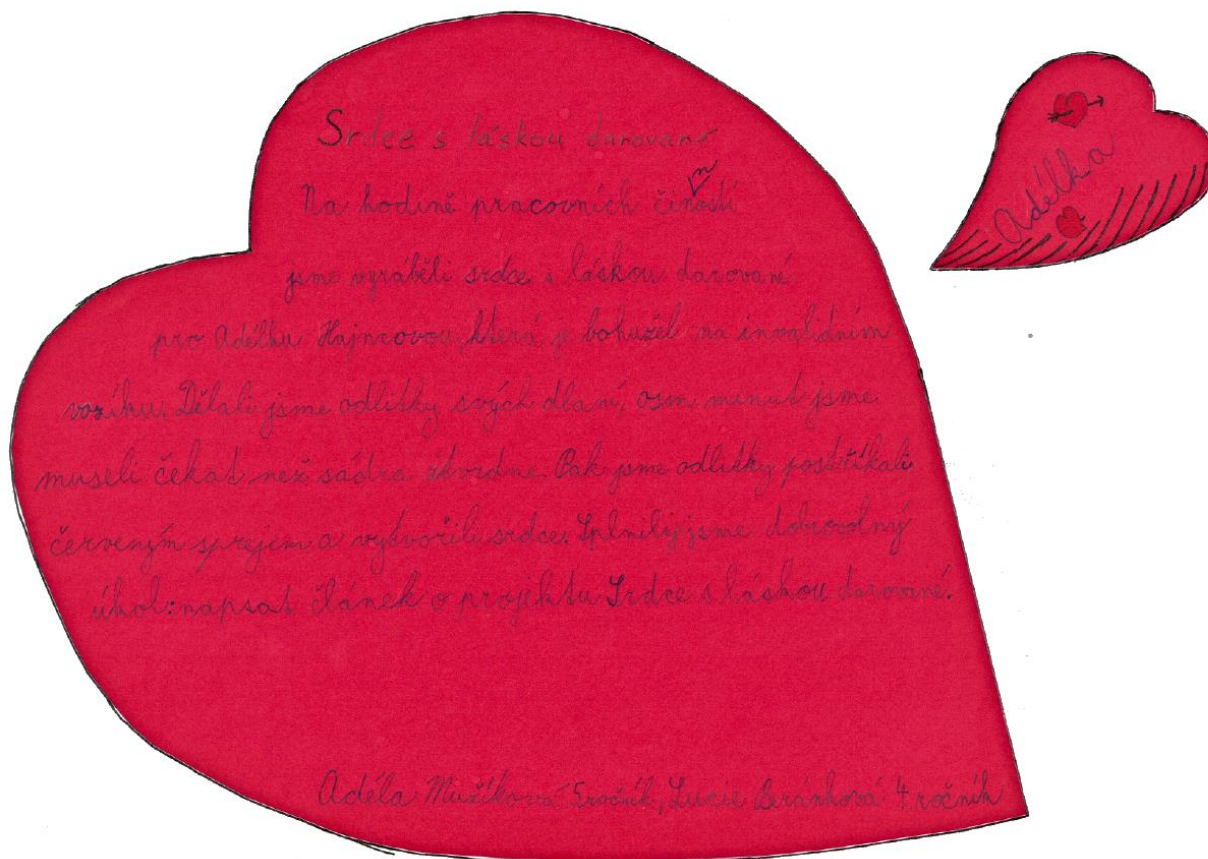 Srdce s láskou darované
Na hodině pracovních činností
jsme vyráběli srdce s láskou darované
pro Adélku Hajncovou, která je bohužel na invalidním
vozíku. Dělali jsme odlitky svých dlaní, osm minut jsme
museli čekat než sádra ztvrdne. Pak jsme odlitky postříkali
červeným sprejem a vytvořili srdce. Splnily jsme dobrovolný
úkol: napsat článek o projektu Srdce s láskou darované.
Adéla Mužíková 5 ročník, Lucie Beránková 4 ročník
Adélka